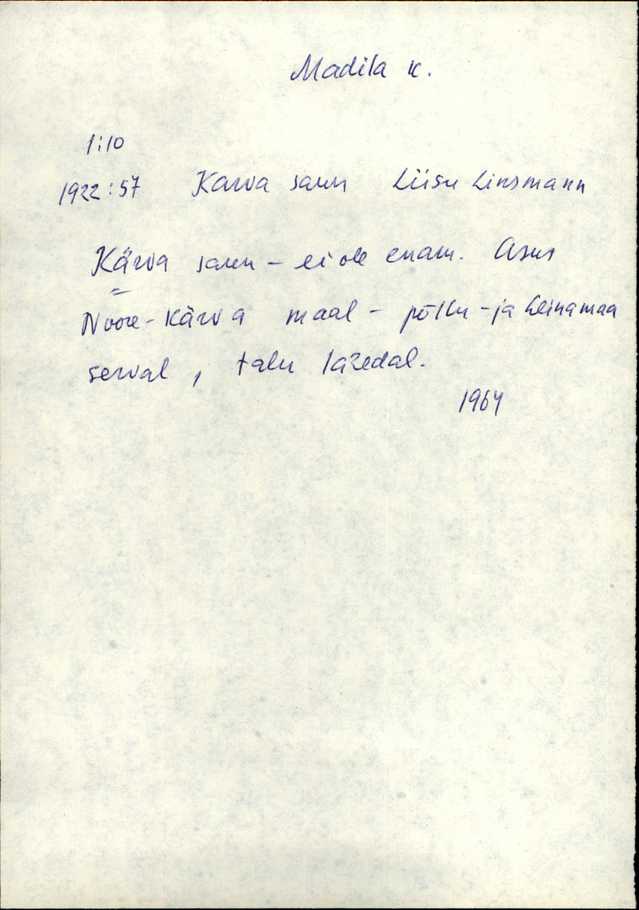 Madila k.
1:10
1922:57 Karva saun Liisu Linsmann
Kärva saun – ei ole enam. Asus
Noore-Kärva maal – põllu-ja heinamaa
serval, talu lähedal.
1964